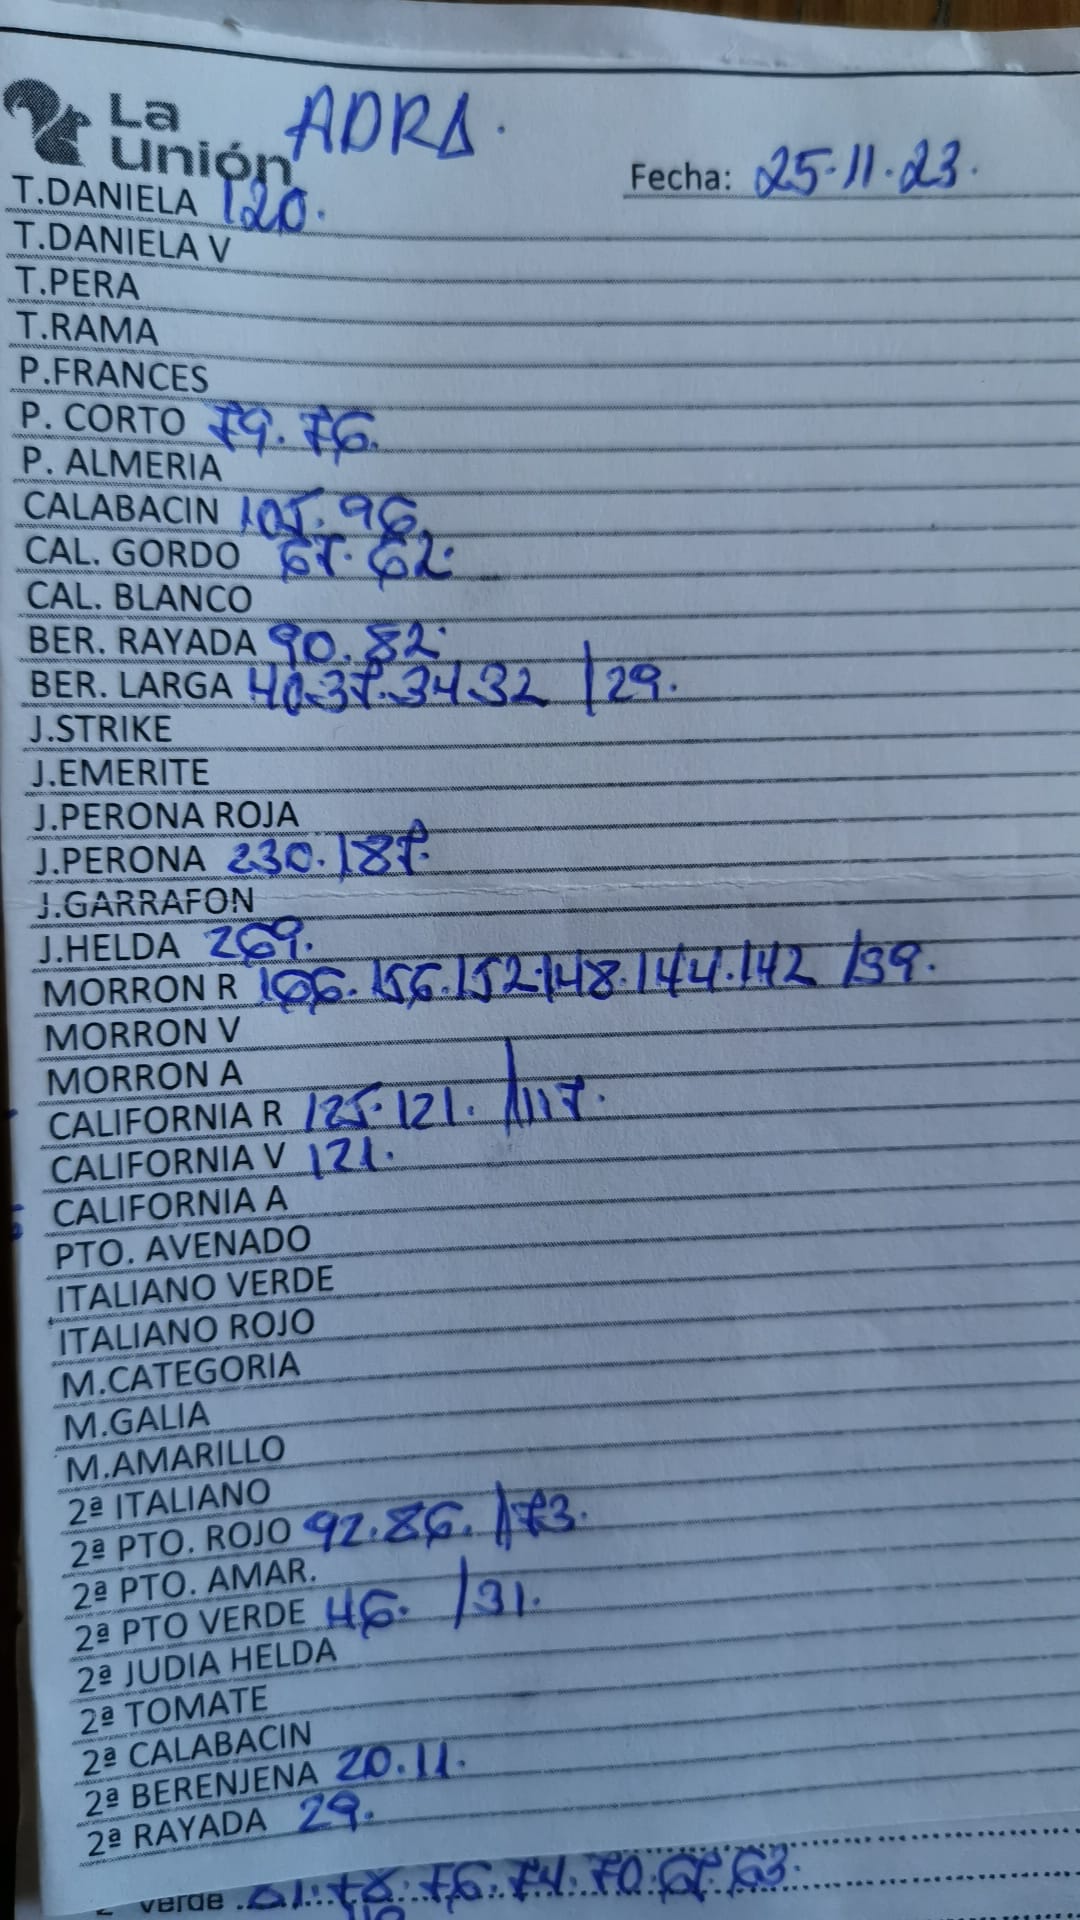 La
Unión
ADRA.
Fecha: 25.11.23.
T.DANIELA 120.
T.DANIELA V
T.PERA
T.RAMA
P.FRANCES
P. CORTO 79.76.
P. ALMERIA
CALABACIN 105.96.
CAL. GORDO 67.62.
CAL. BLANCO
BER. RAYADA 90.82.
BER. LARGA 40.37.34.32 /29.
J.STRIKE
J.EMERITE
J.PERONA ROJA
J.PERONA 230.187.
J.GARRAFON
J.HELDA 269.
MORRON R 166.156.152.148.144.142 /39.
MORRON V
MORRON A
CALIFORNIA R 125.121. /117.
CALIFORNIA V 121.
CALIFORNIA A
PTO. AVENADO
ITALIANO VERDE
ITALIANO ROJO
M.CATEGORIA
M.GALIA
M.AMARILLO
2ª ITALIANO
2ª PTO. ROJO 92.86. /73.
2ª PTO. AMAR.
2ª PTO VERDE 46. /31.
2ª JUDIA HELDA
2ª TOMATE
2ª CALABACIN
2ª BERENJENA 20.11.
2ª RAYADA 29.
verde 78.76.74.70.67.63.